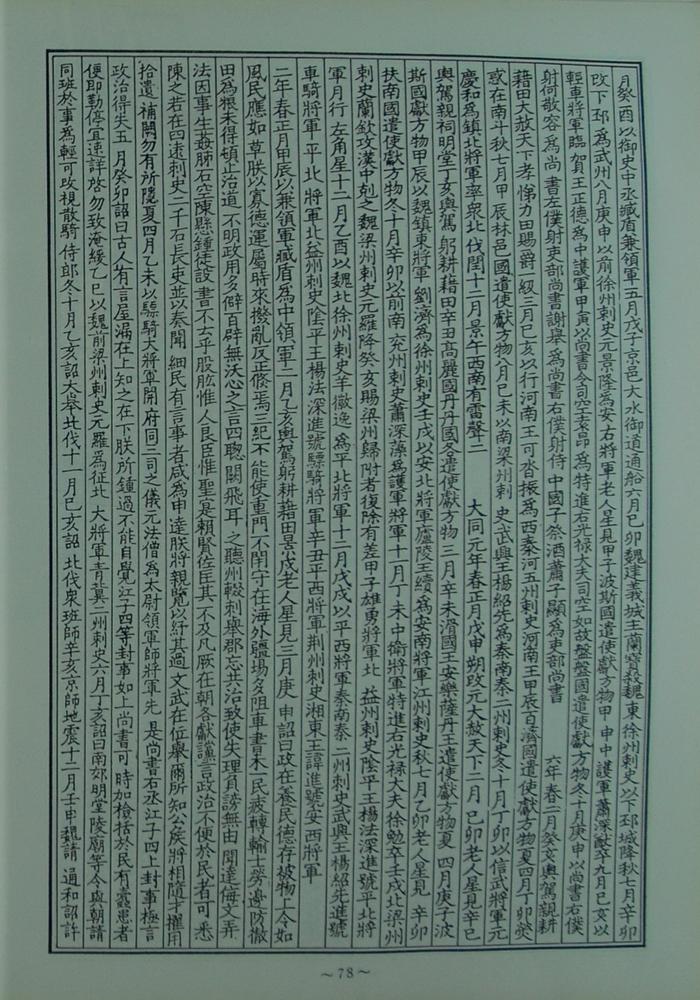 月癸酉以御史中丞臧盾兼領軍五月戊子京邑大水御道通船六月已卯魏建義城主蘭寶殺魏東徐州刺史以下邳城降秋七月辛卯
改下邳為武州八月庚申以前徐州刺史元景隆為安右將軍老人星見甲子波斯國遣使獻方物甲申中護軍蕭深猷卒九月巳亥以
輕車將軍臨賀王正德為中護軍甲寅以尚書令司空袁昂為特進右光禄大夫司空如故盤盤國遣使獻方物冬十月庚申以尚書右僕
射何敬容為尚書左僕射吏部尚書謝舉為尚書右僕射侍中國子祭酒蕭子顯為吏部尚書 六年春二月癸亥輿駕親耕
藉田大赦天下孝悌力田賜爵一級三月已亥以行河南王可沓振為西秦河五州刺史河南王甲辰百濟國遣使獻方物夏四月丁卯熒
惑在南斗秋七月甲辰林邑國遣使獻方物八月巳未以南梁州刺史武興王楊紹先為秦南秦二州刺史冬十月丁卯以信武將軍元
慶和為鎮北將軍率衆北伐閏十二月景午西南有雷聲二 大同元年春正月戊申朔改元大赦天下二月巳卯老人星見辛巳
輿駕親祠明堂丁亥輿駕躬耕藉田辛丑高麗國丹丹國各遣使獻方物三月辛未滑國王安樂薩丹王遣使獻方物夏四月庚子波
斯國獻方物甲辰以魏鎮東將軍劉濟為徐州刺史壬戌以安北將軍廬陵王續為安南將軍江州刺史秋七月乙卯老人星見辛卯
扶南國遣使獻方物冬十月辛卯以前南兗州刺史蕭深藻為護軍將軍十一月丁未中衛將軍特進右光禄大夫徐勉卒壬戌北梁州
刺史蘭欽攻漢中剋之魏梁州刺史元羅降癸亥賜梁州歸附者復除有差甲子雄勇將軍北益州刺史陰平王楊法深進號平北將
軍月行左角星十二月乙酉以魏北徐州刺史羊徽逸為平北將軍十二月戊戌以平西將軍秦南秦二州刺史武興王楊紹先進號
車騎將軍平北將軍北益州刺史陰平王楊法深進號驃騎將軍辛丑平西將軍荆州刺史湘東王諱進號安西將軍
二年春正月甲辰以兼領軍臧盾為中領軍二月乙亥輿駕躬耕藉田景戌老人星見三月庚申詔曰政在養民德存被物上令如
風民應如草朕以寡德運屬時來撥亂反正倐焉三紀不能使重門不閉守在海外疆場多阻車書未一民疲轉輸士勞邊防徹
田為粮未得頓止治道不明政用多僻百辟無沃心之言四聰闕飛耳之聽州輟刺舉郡忘共治致使失理負謗無由聞達侮文弄
法因事生姦肺石空陳縣鍾徒設書不云乎股肱惟人良臣惟聖寔賴賢佐匡其不及凡厥在朝各獻讜言政治不便於民者可悉
陳之若在四遠刺史二千石長吏並以奏聞細民有言事者咸為申達朕將親覽以紓其過文武在位舉爾所知公侯將相隨才擢用
拾遺補闕勿有所隱夏四月乙未以驃騎大將軍開府同三司之儀元法僧為太尉領軍師將軍先是尚書右丞江子四上封事極言
政治得失五月癸卯詔曰古人有言屋漏在上知之在下朕所鍾過不能自覺江子四等封事如上尚書可時加檢括於民有蠹患者
便即勒停宜速詳啓勿致淹緩乙巳以魏前梁州刺史元羅為征北大將軍青冀二州刺史六月丁亥詔曰南郊明堂陵廟等令與朝請
同班於事為輕可改視散騎侍郎冬十月乙亥詔大舉北伐十一月巳亥詔北伐衆班師辛亥京師地震十二月壬申魏請通和詔許
~78~